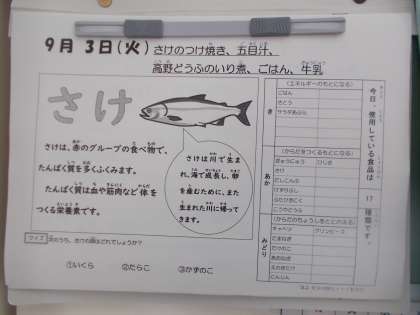 9月 3日(火) さけのつけ焼き、五目汁、
高野どうふのいり煮、ごはん、牛乳
さけ
さけは、赤のグループの食べ物で、
たんぱく質を多くふくみます。
たんぱく質は血や筋肉など体を
つくる栄養素です。
さけは川で生ま
れ、海で成長し、卵
を産むために、また
生まれた川に帰って
きます。
クイズ 次のうち、さけの卵はどれでしょうか?
①いくら ②たらこ ③かずのこ
今日、使用している食品は 17 種類です。
(エネルギーのもとになる)
き
ごはん
さとう
サラダあぶら
(からだをつくるもとになる)
あか
ぎゅうにゅう ひじき
さけ
としこんぶ
けずりぶし
ぶたひきにく
こうやどうふ
(からだのちょうしをととのえる)
みどり
キャベツ グリンピース
たまねぎ
たけのこ
あおねぎ
えのきだけ
にんじん